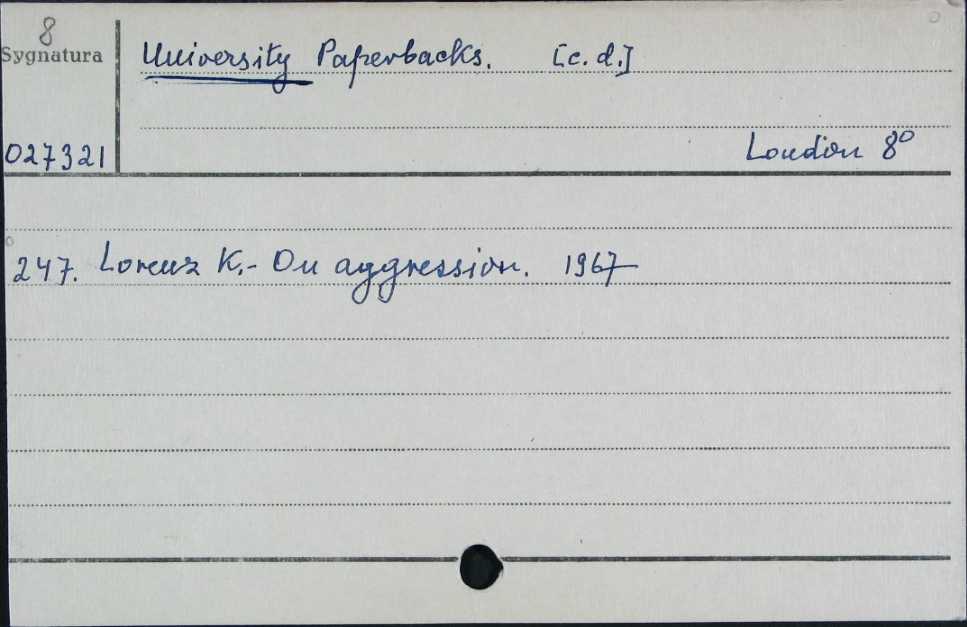 8
Sygnatura
University Paperbacks. [c.d.]
027321
London 8°
247. Lorenz K.- On aggression. 1967